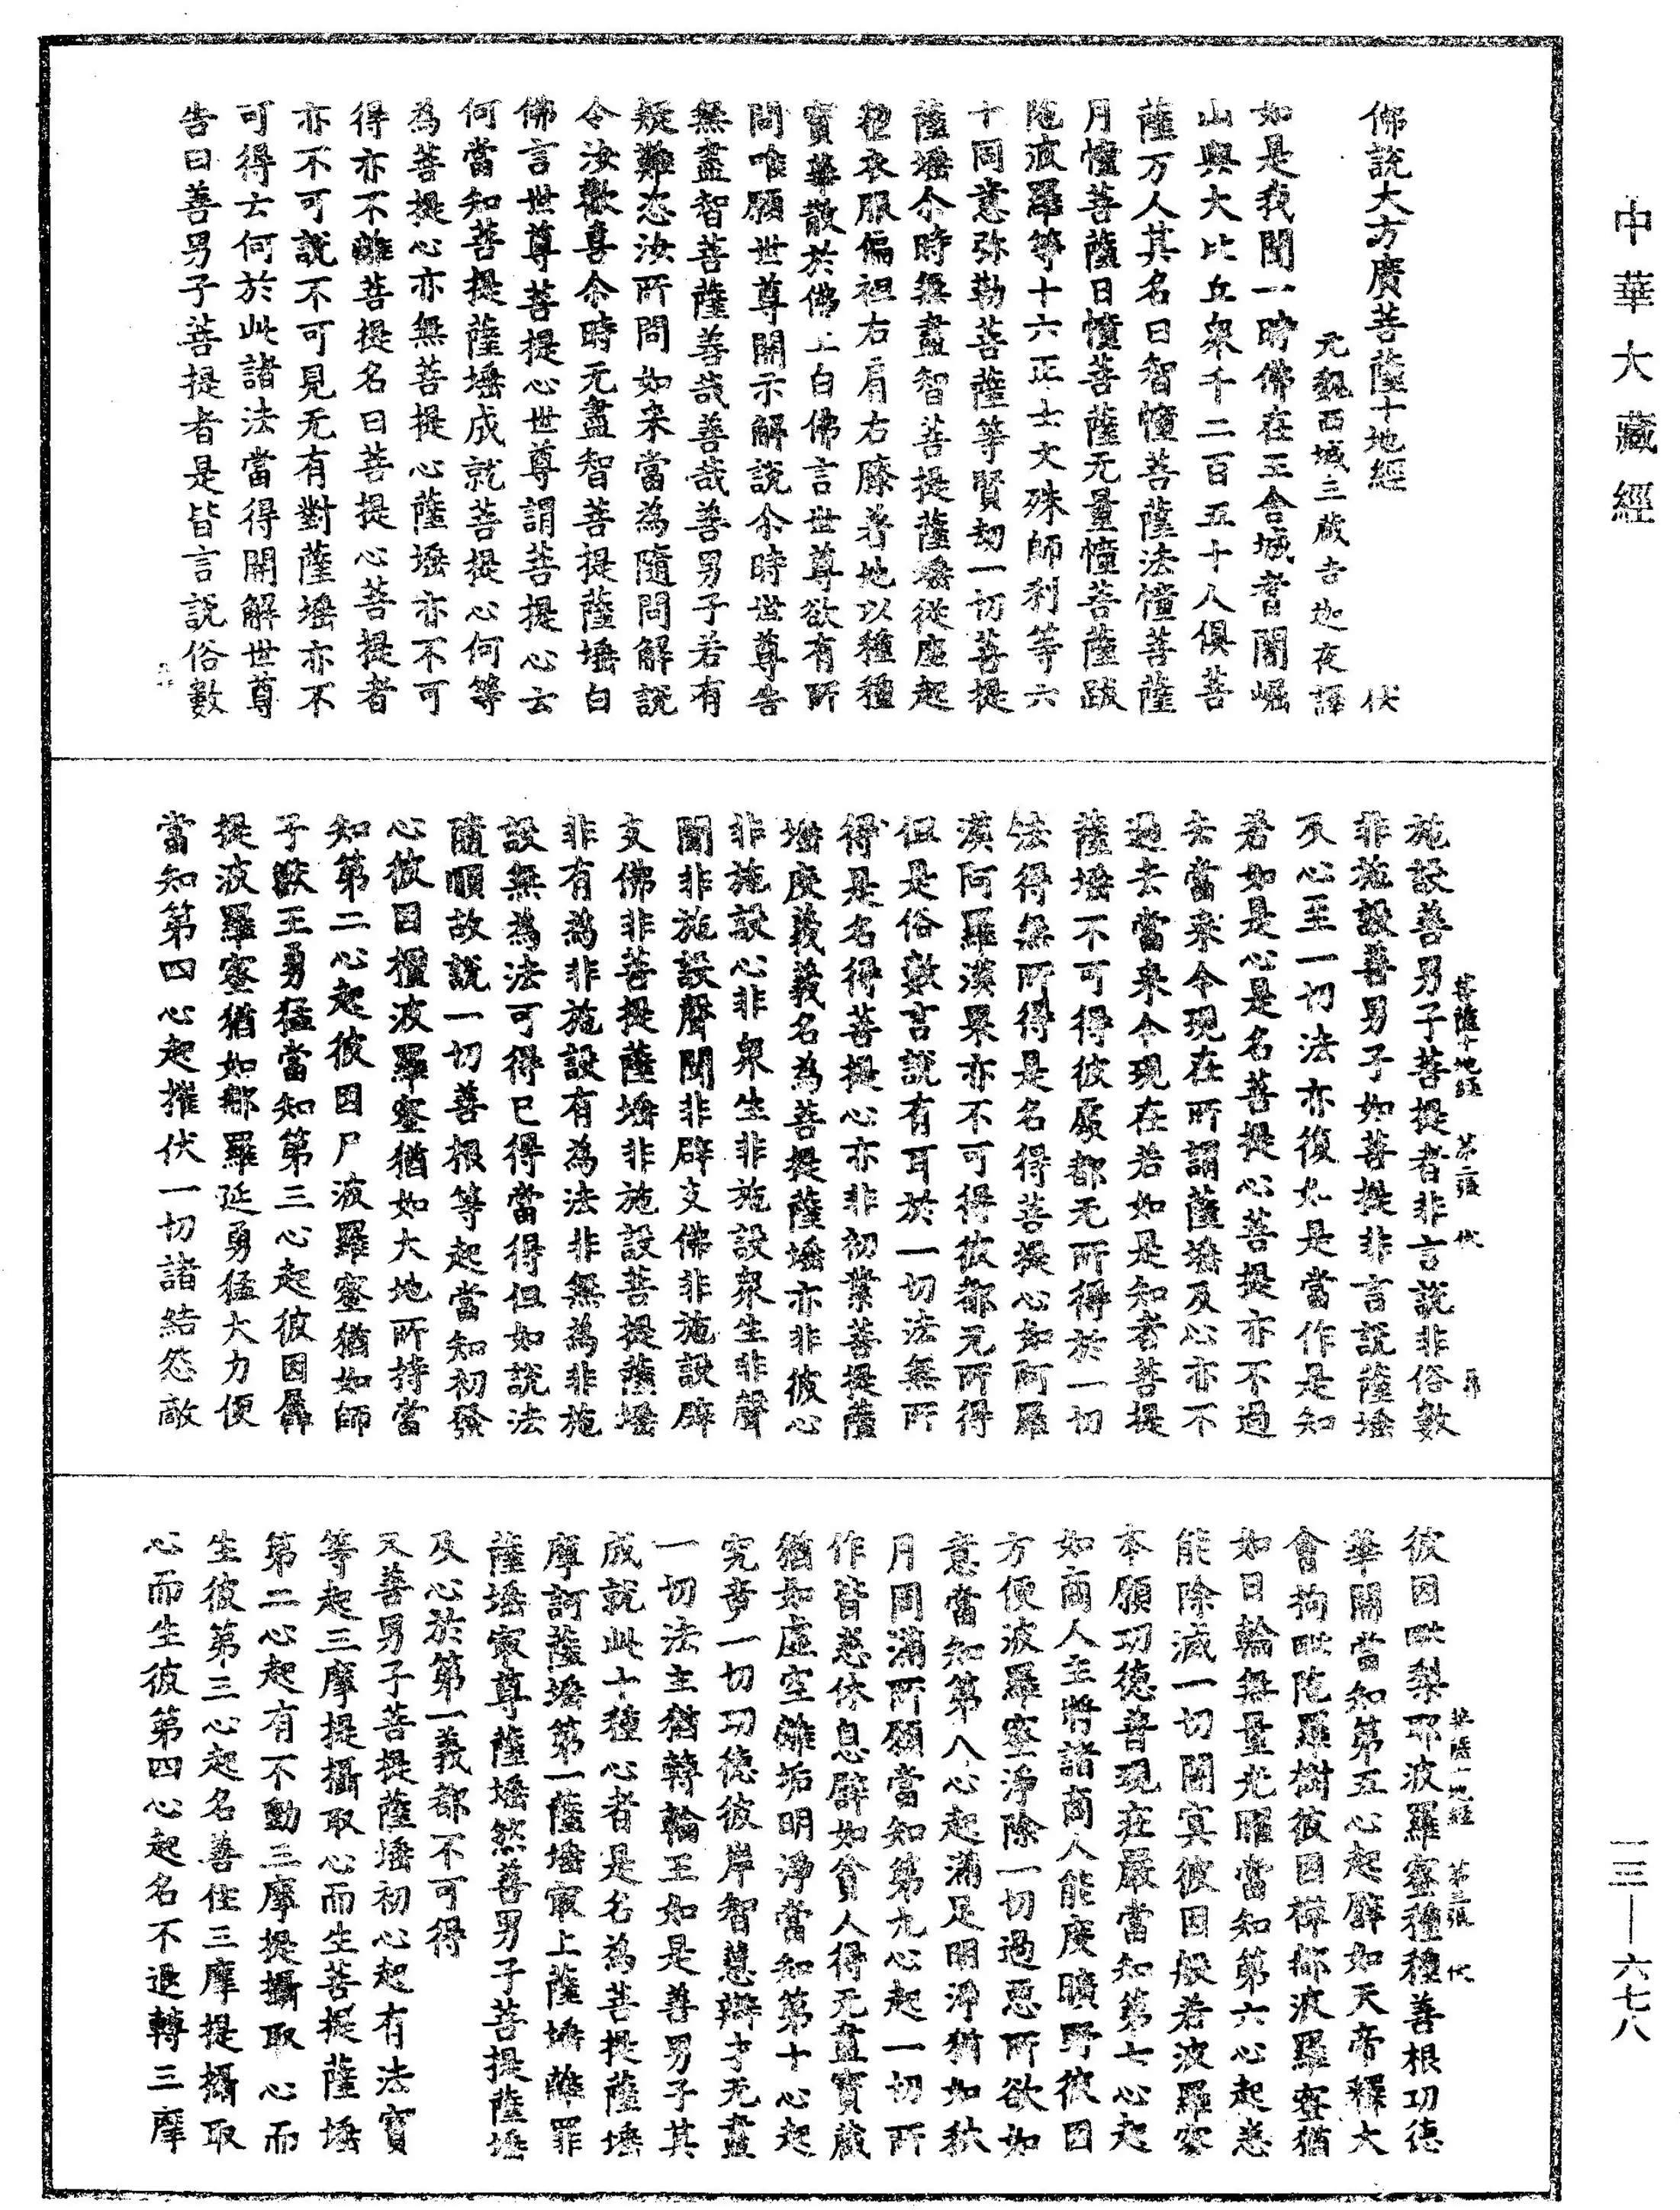 中華大藏經
佛說大方廣菩薩十地經 伏
元魏西域三藏吉迦夜譯
如是我聞一時佛在王舍城耆闍崛
山與大比丘衆千二百五十人俱菩
薩万人其名曰智憧菩薩法憧菩薩
月憧菩薩日憧菩薩无量憧菩薩跋
陁波羅等十六正士文殊師利等六
十同意弥勒菩薩等賢劫一切菩提
薩埵尒時無盡智菩提薩埵從座起
種衣服偏袒右肩右膝著地以種種
寶華散於佛上白佛言世尊欲有所
問唯願世尊開示解說尒時世尊告
無盡智菩薩善哉善哉善男子若有
疑難恣汝所問如来當為隨問解說
令汝歡喜尒時元盡智菩提薩埵白
佛言世尊菩提心世尊謂菩提心云
何當知菩提薩埵成就菩提心何等
為菩提心亦無菩提心薩埵亦不可
得亦不離菩提名曰菩提心菩提者
亦不可說不可見无有對薩埵亦不
可得云何於此諸法當得開解世尊
告曰善男子菩提者是皆言說俗數
菩薩十地經 第二張 伏
施設善男子菩提者非言說非俗數
非施設善男子如菩提非言說薩埵
及心至一切法亦復如是當作是知
若如是心是名菩提心菩提亦不過
去當来今現在所謂薩埵及心亦不
過去當来今現在若如是知者菩提
薩埵不可得彼處都无所得於一切
法得無所得是名得菩提心如阿羅
漢阿羅漢果亦不可得彼都元所得
但是俗數言說有耳於一切法無所
得是名得菩提心亦非初業菩提薩
埵庋義義名為菩提薩埵亦非彼心
非施設心非衆生非施設衆生非聲
聞非施設聲聞非辟支佛非施設辟
支佛非菩提薩埵非施設菩提薩埵
非有為非施設有為法非無為非施
設無為法可得已得當得但如說法
隨順故說一切善根等起當知初發
心彼因檀波羅蜜猶如大地所持當
知第二心起彼因尸波羅蜜猶如師
子獸王勇猛當知第三心起彼因羼
提波羅蜜猶如那羅延勇猛大力便
當知第四心起摧伏一切諸結怨敵
菩薩十地經 第三張 伏
彼因毗梨耶波羅蜜種種善根功德
華開當知第五心起譬如天帝釋大
會拘毗陁羅樹彼因禪那波羅蜜猶
如日輪無量光曜當知第六心起悉
能除滅一切闇冥彼因般若波羅蜜
本願功德普現在嚴當知第七心起
如商人主將諸商人能度曠野彼因
方便波羅蜜淨除一切過惡所欲如
意當知第八心起滿足明淨猶如秋
月同滿所願當知第九心起一切所
作皆悉休息譬如貧人得无盡寶藏
猶如虛空離垢明淨當知第十心起
究竟一切功德彼岸智慧辯才无盡
一切法主猶轉輪王如是善男子其
成就此十種心者是名為菩提薩埵
摩訶薩埵第一薩埵冣上薩埵離罪
薩埵冣尊薩埵然善男子菩提薩埵
及心於第一義都不可得
又善男子菩提薩埵初心起有法寶
等起三摩提攝取心而生菩提薩埵
第二心起有不動三摩提攝取心而
生彼第三心起名善住三摩提攝取
心而生彼第四心起名不退轉三摩
一三—六七八